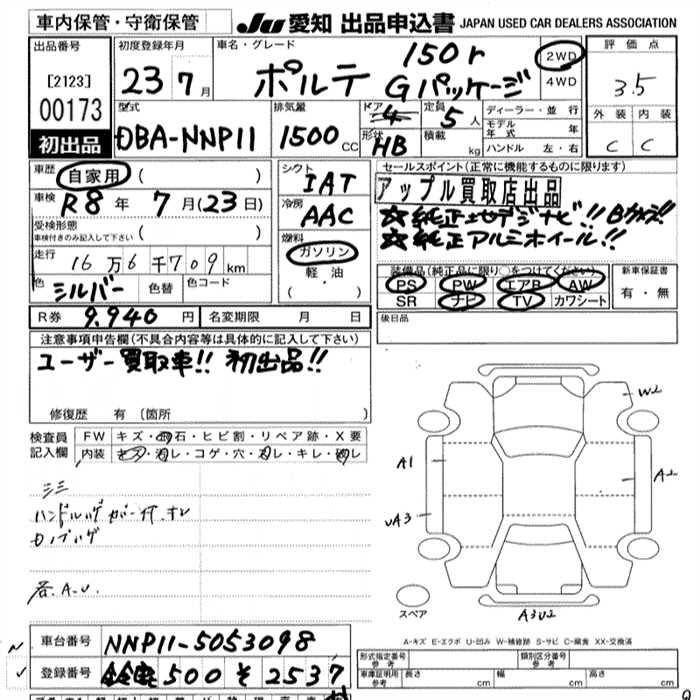 車内保管・守衛保管
JU 愛知 出品申込書 JAPAN USED CAR DEALERS ASSOCIATION
出品番号
[2123]
00173
初出品
初度登録年月
23 7月
車名・グレード
ポルテ 150r
Gパッケージ
2WD
4WD
評価点
3.5
外装 内装
C C
型式
DBA-NNP11
排気量
1500 CC
ドア 4
形状 HB
定員 5 人
積載 kg
ディーラー・並行
モデル年式 年
ハンドル 左・右
車歴 自家用 ( )
車検 R8年 7月(23日)
受検形態
車検付きのみ記入して下さい ( )
走行 16万6千709km
色 シルバー 色替 色コード
シフト IAT
冷房 AAC
燃料
ガソリン
軽・油
( )
セールスポイント(正常に機能するものに限ります)
アップル買取店出品
☆純正地デジナビ!! Bカメラ!!
☆純正アルミホイール!!
装備品(純正品に限り○をつけてください)
PS PW エアB AW
SR ナビ TV カワシート
新車保証書
有・無
R券 9,940円 名変期限 月 日
後日品
注意事項申告欄(不具合内容等は具体的に記入して下さい)
ユーザー買取車!! 初出品!!
修復歴 有 (箇所 )
検査員記入欄
FW キズ・飛石・ヒビ割・リペア跡・X要
内装 キズ・汚レ・コゲ・穴・スレ・キレ・破レ
ハンドル
各A.U
W2
A1
A2
A3U2
スペア
A-キズ E-エクボ U-凹み W-補修跡 S-サビ C-腐食 XX-交換済
車台番号 NNP11-5053098
登録番号 500 そ 2537
形式指定番号 参考
類別区分番号 参考
車庫証明用 参考 長さ 幅 高さ